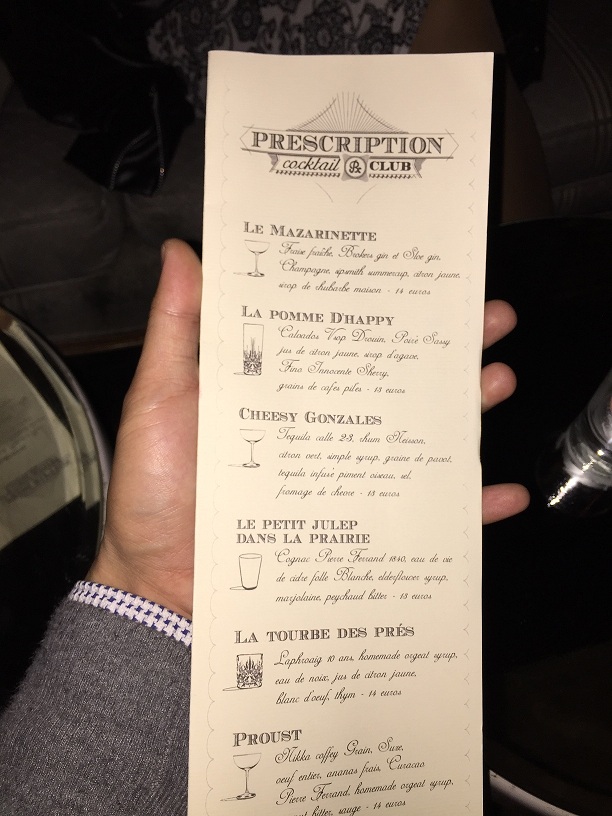 PRESCRIPTION
cocktail Rx CLUB
LE MAZARINETTE
Fraise fraîche, Brokers gin et Sloe gin,
Champagne, sipsmith summercup, citron jaune,
sirop de rhubarbe maison - 14 euros
LA POMME D'HAPPY
Calvados Vsop Drouin, Poiré Sassy
jus de citron jaune, sirop d'agave,
Fino Innocente Sherry,
grains de cafes piles - 13 euros
CHEESY GONZALES
Tequila calle 23, rhum Neisson,
citron vert, simple syrup, graine de pavot,
tequila infusé piment oiseau, sel,
fromage de chevre - 13 euros
LE PETIT JULEP
DANS LA PRAIRIE
Cognac Pierre Ferrand 1840, eau de vie
de cidre folle Blanche, elderflower syrup,
marjolaine, peychaud bitter - 13 euros
LA TOURBE DES PRÉS
Laphroaig 10 ans, homemade orgeat syrup,
eau de noix, jus de citron jaune,
blanc d'oeuf, thym - 14 euros
PROUST
Nikka coffey Grain, Suze,
oeuf entier, ananas frais, Curacao
Pierre Ferrand, homemade orgeat syrup,
bitter, sauge - 14 euros